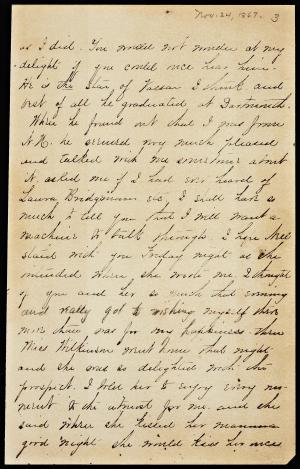 Nov. 24, 1867. 3
as I did. You would not wonder at my
delight if you could once hear him.
He is the Star of Vassar I think and
best of all he graduated at Dartmouth.
When he found out that I was from
N.H. he seemed very much pleased
and talked with me sometime about
it. asked me if I had ever heard of
Laura Bridgman &c, I shall have so
much to tell you that I will want a
machine to talk through. I hope Nell
staid with you Friday night as she
intended when she wrote me. I thought
of you and her so much that evening
and really got to wishing myself there
more than was for my happiness when
Miss Wilkinson went home that night
and she was so delighted with the
prospect. I told her to enjoy every mo-
ment to the utmost for me. and she
said when she kissed her mamma
good night she would kiss her once